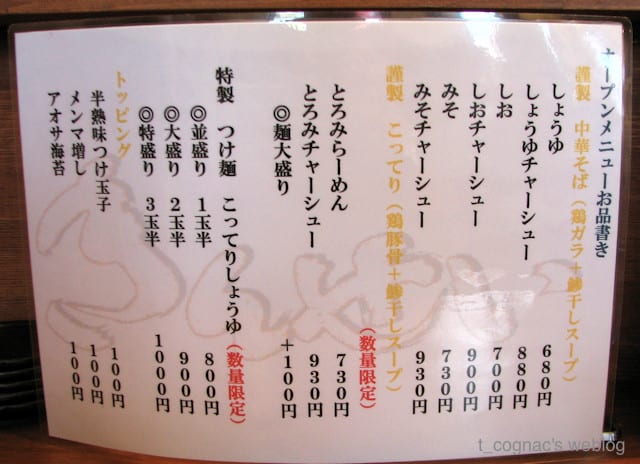 オープンメニューお品書き
謹製 中華そば(鶏ガラ+鯵干しスープ)
しょうゆ 680円
しょうゆチャーシュー 880円
しお 700円
しおチャーシュー 900円
みそ 730円
みそチャーシュー 930円
謹製 こってり(鶏豚骨+鯵干しスープ)
(数量限定)
とろみらーめん 730円
とろみチャーシュー 930円
◎麺大盛り +100円
特製 つけ麺 こってりしょうゆ(数量限定)
◎並盛り 1玉半 800円
◎大盛り 2玉半 900円
◎特盛り 3玉半 1000円
トッピング
半熟味つけ玉子 100円
メンマ増し 100円
アオサ海苔 100円
t_cognac's weblog